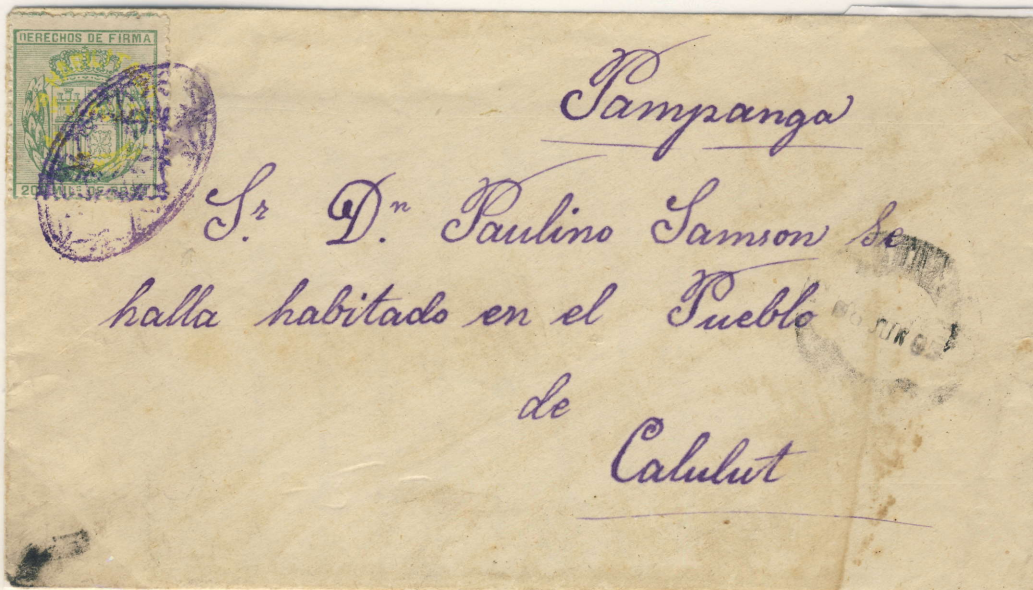 DERECHOS DE FIRMA
Pampanga
Sr. Dn. Paulino Samson se
halla habitado en el Pueblo
de
Calulut